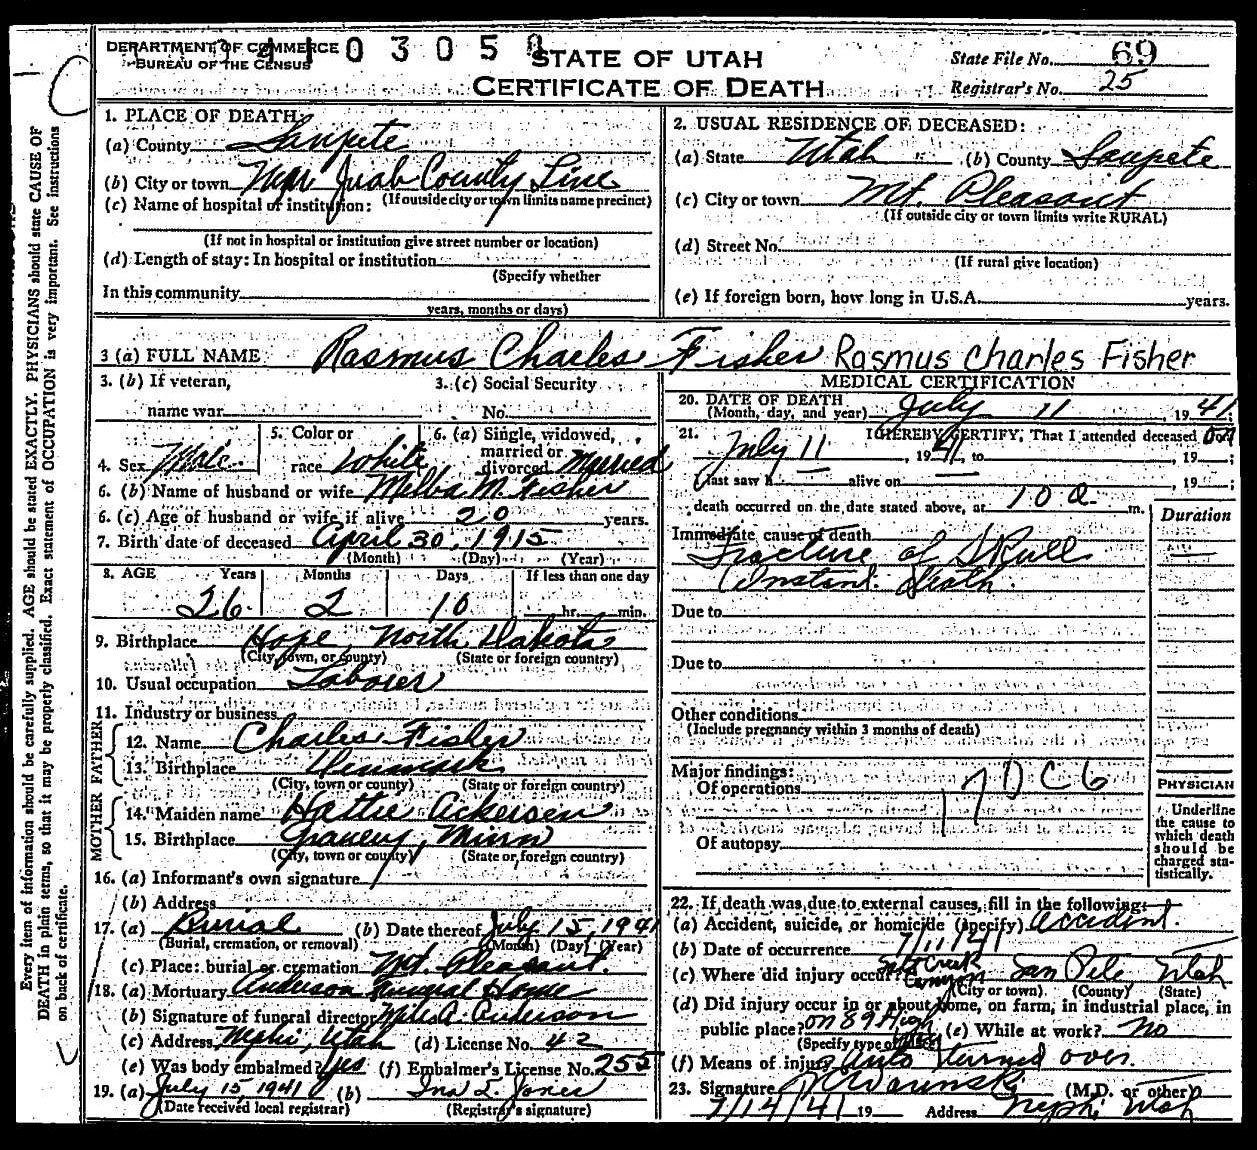 DEPARTMENT OF COMMERCE
BUREAU OF THE CENSUS
STATE OF UTAH
CERTIFICATE OF DEATH
State File No. 69
Registrar's No. 25
Every item of information should be carefully supplied. AGE should be stated EXACTLY. PHYSICIANS should state CAUSE OF
DEATH in plain terms, so that it may be properly classified. Exact statement of OCCUPATION is very important. See instructions
on back of certificate.
1. PLACE OF DEATH:
(a) County Sanpete
(b) City or town Near Juab County Line
(If outside city or town limits name precinct)
(c) Name of hospital or institution:
(If not in hospital or institution give street number or location)
(d) Length of stay: In hospital or institution
(Specify whether
In this community
years, months or days)
2. USUAL RESIDENCE OF DECEASED:
(a) State Utah (b) County Sanpete
(c) City or town Mt. Pleasant
(If outside city or town limits write RURAL)
(d) Street No.
(If rural give location)
(e) If foreign born, how long in U.S.A. years.
3 (a) FULL NAME Rasmus Charles Fisher Rasmus Charles Fisher
3. (b) If veteran,
name war
3. (c) Social Security
No.
4. Sex Male
5. Color or
race White
6. (a) Single, widowed,
married or
divorced Married
6. (b) Name of husband or wife Melba M. Fisher
6. (c) Age of husband or wife if alive 20 years.
7. Birth date of deceased April 30, 1915
(Month) (Day) (Year)
8. AGE Years Months Days If less than one day
26 2 10 hr. min.
9. Birthplace Hope, North Dakota
(City, town, or county) (State or foreign country)
10. Usual occupation Laborer
11. Industry or business
FATHER
12. Name Charles Fisher
13. Birthplace Denmark
(City, town or county) (State or foreign country)
MOTHER
14. Maiden name Hattie Ackersen
15. Birthplace Minn
(City, town or county) (State or foreign country)
16. (a) Informant's own signature
(b) Address
17. (a) Burial (b) Date thereof July 15, 1941
(Burial, cremation, or removal) (Month) (Day) (Year)
(c) Place: burial or cremation Mt. Pleasant.
18. (a) Mortuary Anderson Funeral Home
(b) Signature of funeral director Anderson
(c) Address Nephi, Utah (d) License No. 42
(e) Was body embalmed? Yes (f) Embalmer's License No. 255
19. (a) July 15 1941 (b) Ina L. Jones
(Date received local registrar) (Registrar's signature)
MEDICAL CERTIFICATION
20. DATE OF DEATH
(Month, day, and year) July 11 1941
21. I HEREBY CERTIFY, That I attended deceased on
July 11, 1941, to , 19 ;
I last saw h alive on , 19 ;
death occurred on the date stated above, at 10 a m.
Duration
Immediate cause of death
Fracture of Skull
Instant death.
Due to
Due to
Other conditions
(Include pregnancy within 3 months of death)
Major findings:
Of operations
170C6
Of autopsy
PHYSICIAN
Underline
the cause to
which death
should be
charged sta-
tistically.
22. If death was due to external causes, fill in the following:
(a) Accident, suicide, or homicide (specify) Accident.
(b) Date of occurrence 7/11/41
(c) Where did injury occur? Salt Creek Canyon San Pete Utah
(City or town) (County) (State)
(d) Did injury occur in or about home, on farm, in industrial place, in
public place? on 89 High (e) While at work? No
(Specify type of place)
(f) Means of injury Auto turned over.
23. Signature (M.D. or other)
7/14/41 19 Address Nephi Utah